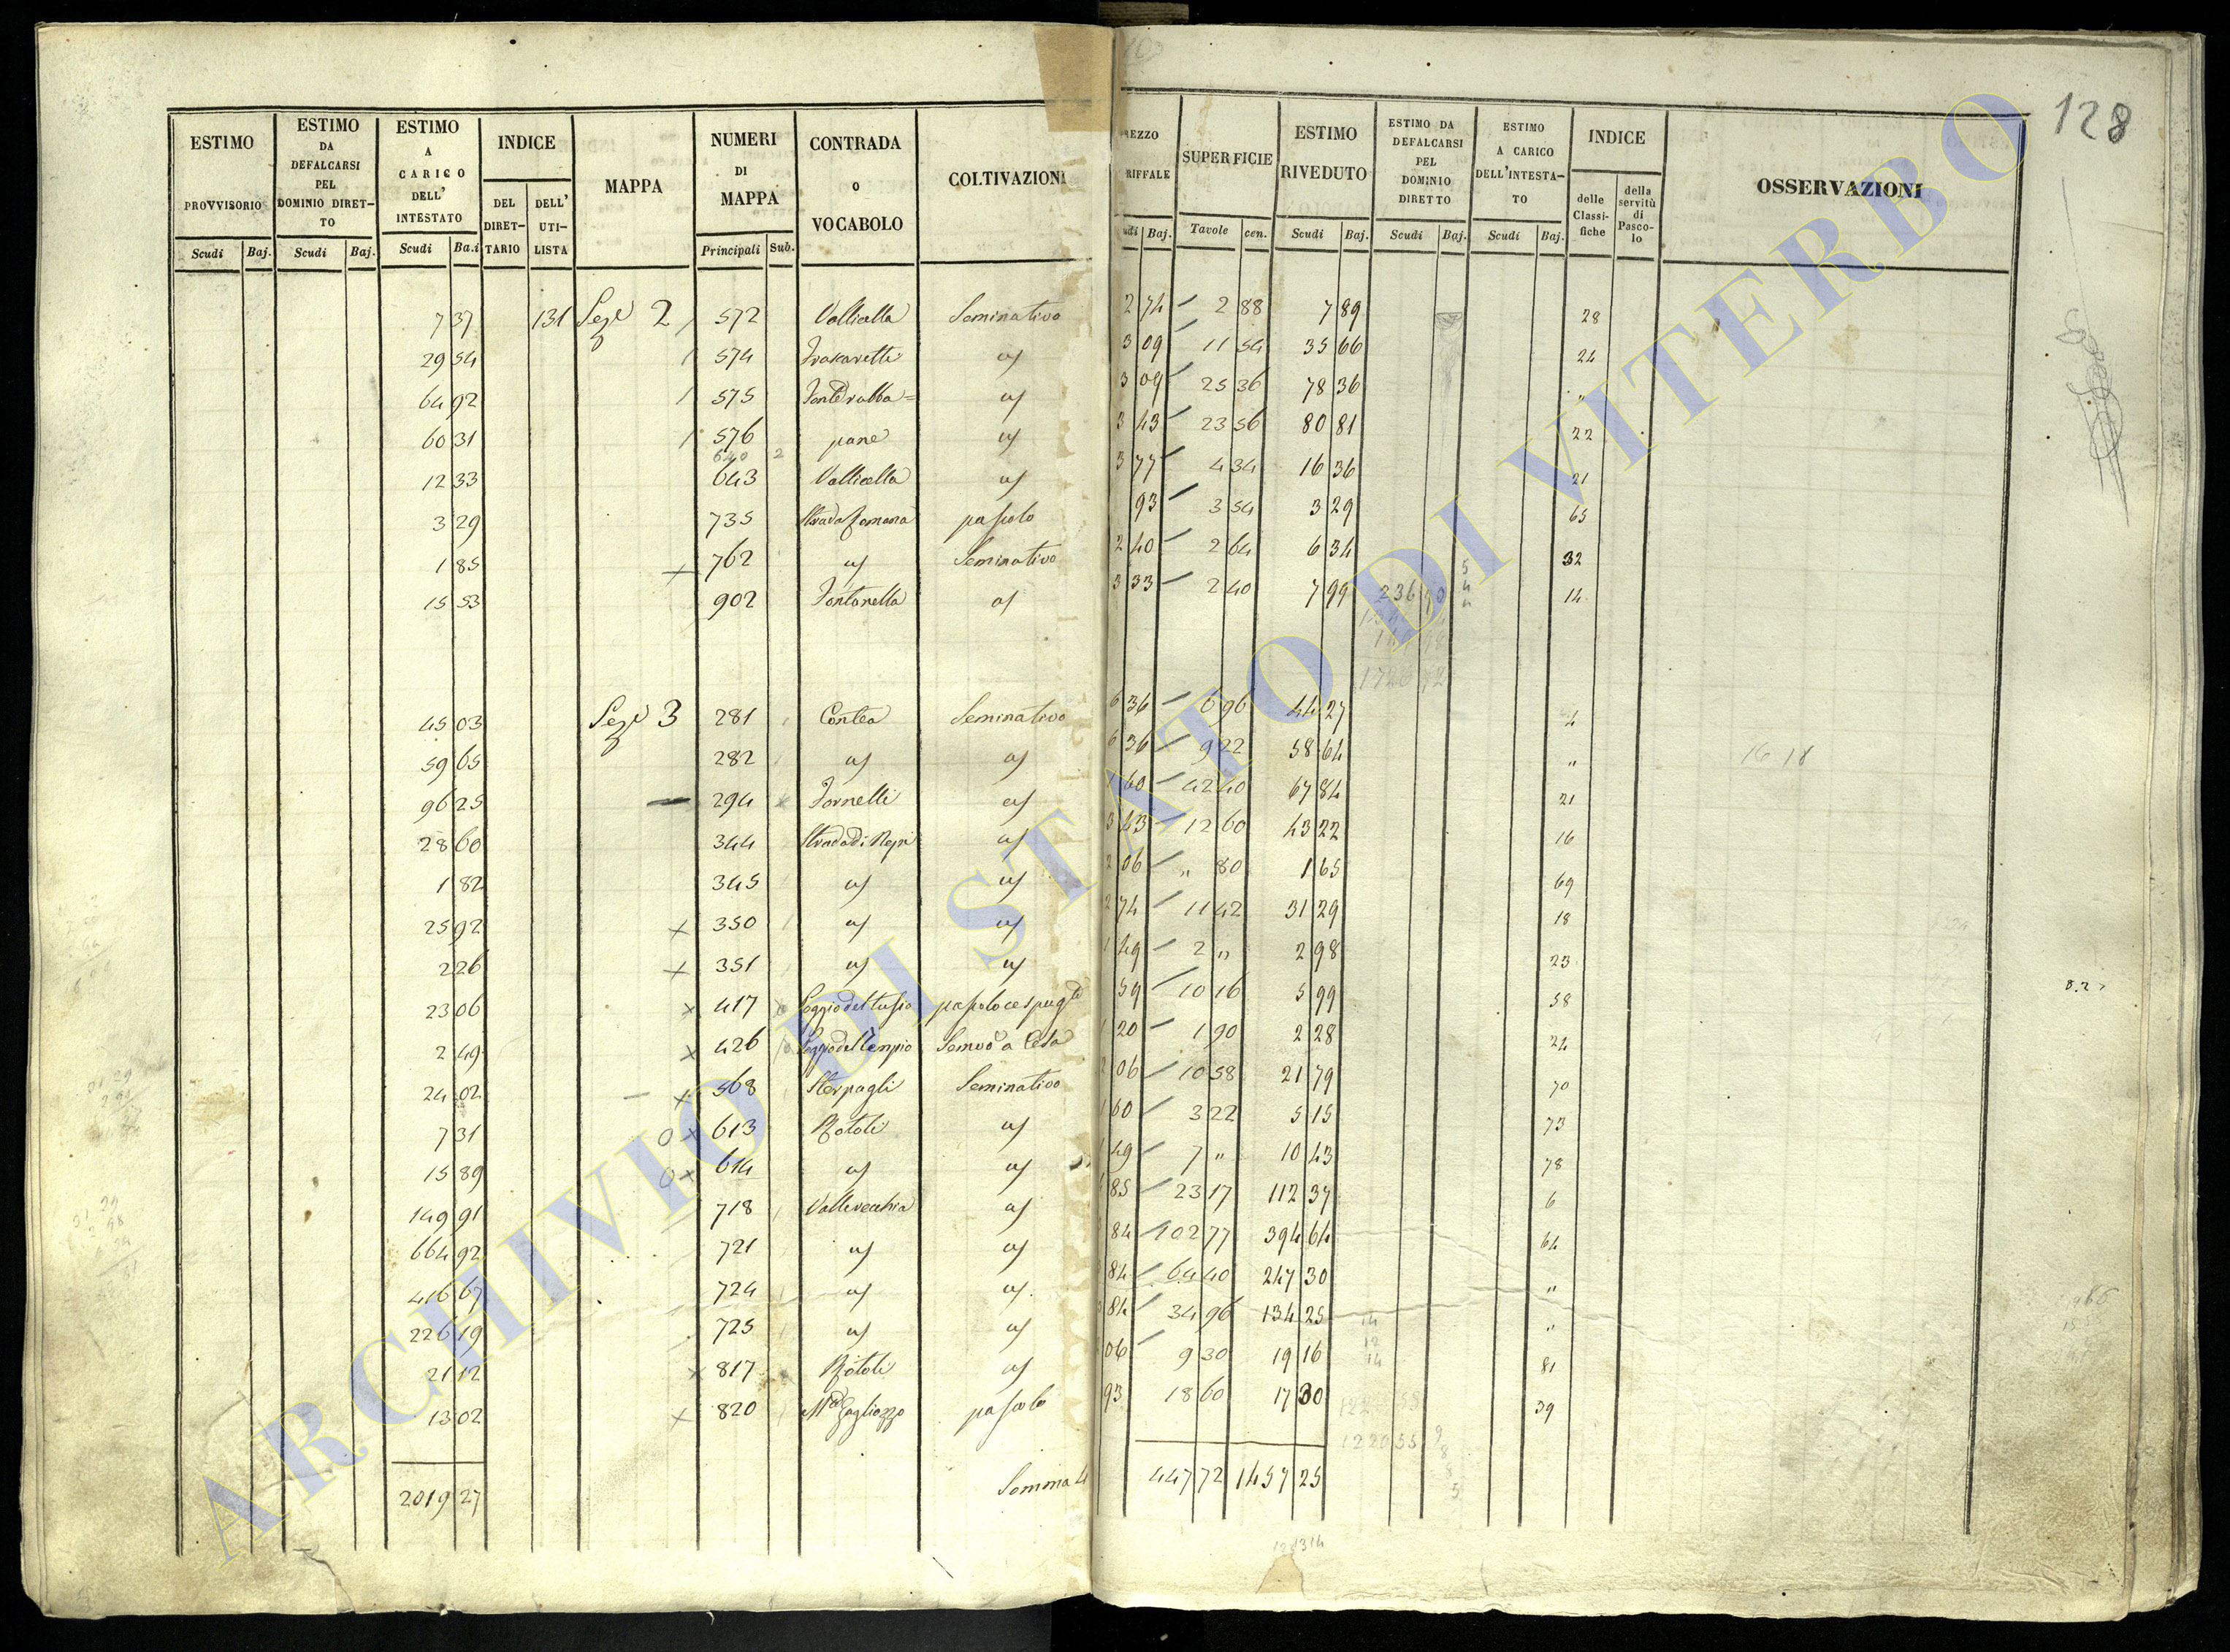 128
ESTIMO PROVVISORIO Scudi Baj.
ESTIMO DA DEFALCARSI PEL DOMINIO DIRET-TO Scudi Baj.
ESTIMO A CARICO DELL' INTESTATO Scudi Ba.i
INDICE DEL DIRET-TARIO DELL' UTI-LISTA
MAPPA
NUMERI DI MAPPA Principali Sub.
CONTRADA O VOCABOLO
COLTIVAZIONI
REZZO RIFFALE udi Baj.
SUPERFICIE Tavole cen.
ESTIMO RIVEDUTO Scudi Baj.
ESTIMO DA DEFALCARSI PEL DOMINIO DIRETTO Scudi Baj.
ESTIMO A CARICO DELL'INTESTA-TO Scudi Baj.
INDICE delle Classi-fiche della servitù di Pasco-lo
OSSERVAZIONI
7 37 131 Seze 2 572 Vallicella Seminativo 2 74 2 88 7 89 28
29 54 574 a/ 3 09 11 54 35 66 24
64 92 575 a/ 3 09 25 36 78 36 "
60 31 576 pane a/ 3 43 23 56 80 81 22
640 2
12 33 643 Vallicella a/ 3 77 4 34 16 36 21
3 29 735 Strada Romana pascolo 93 3 54 3 29 65
1 85 762 a/ Seminativo 2 40 2 64 6 34 32
15 53 902 Fontanella a/ 3 33 2 40 7 99 236 14
45 03 Seze 3 281 Contea Seminativo 6 36 6 96 44 27 4
59 65 282 a/ a/ 6 36 9 22 58 64 " 16 18
96 25 294 Fornelli a/ 1 60 42 40 67 84 21
28 60 344 Strada di Nepi a/ 3 43 12 60 43 22 16
1 82 345 a/ a/ 2 06 " 80 1 65 69
25 92 350 a/ a/ 2 74 11 42 31 29 18
2 26 351 a/ a/ 1 49 2 " 2 98 23
23 06 417 Poggio del tufo pascolo cespugto 59 10 16 5 99 58
2 49 426 Poggio del Tempio Semvo a Cesa 1 20 1 90 2 28 24
24 02 568 Sterpagli Seminativo 2 06 10 58 21 79 70
7 31 613 Rotoli a/ 1 60 3 22 5 15 73
15 89 614 a/ a/ 1 49 7 " 10 43 78
149 91 718 Vallevecchia a/ 85 23 17 112 37 6
664 92 721 a/ a/ 84 102 77 394 64 64
416 67 724 a/ a/ 84 64 40 247 30 "
226 19 725 a/ a/ 84 34 96 134 25 "
21 12 817 Rotoli a/ 06 9 30 19 16 81
13 02 820 pascolo 93 18 60 17 30 39
1220 55
2019 27 Somma 447 72 1457 25
ARCHIVIO DI STATO DI VITERBO